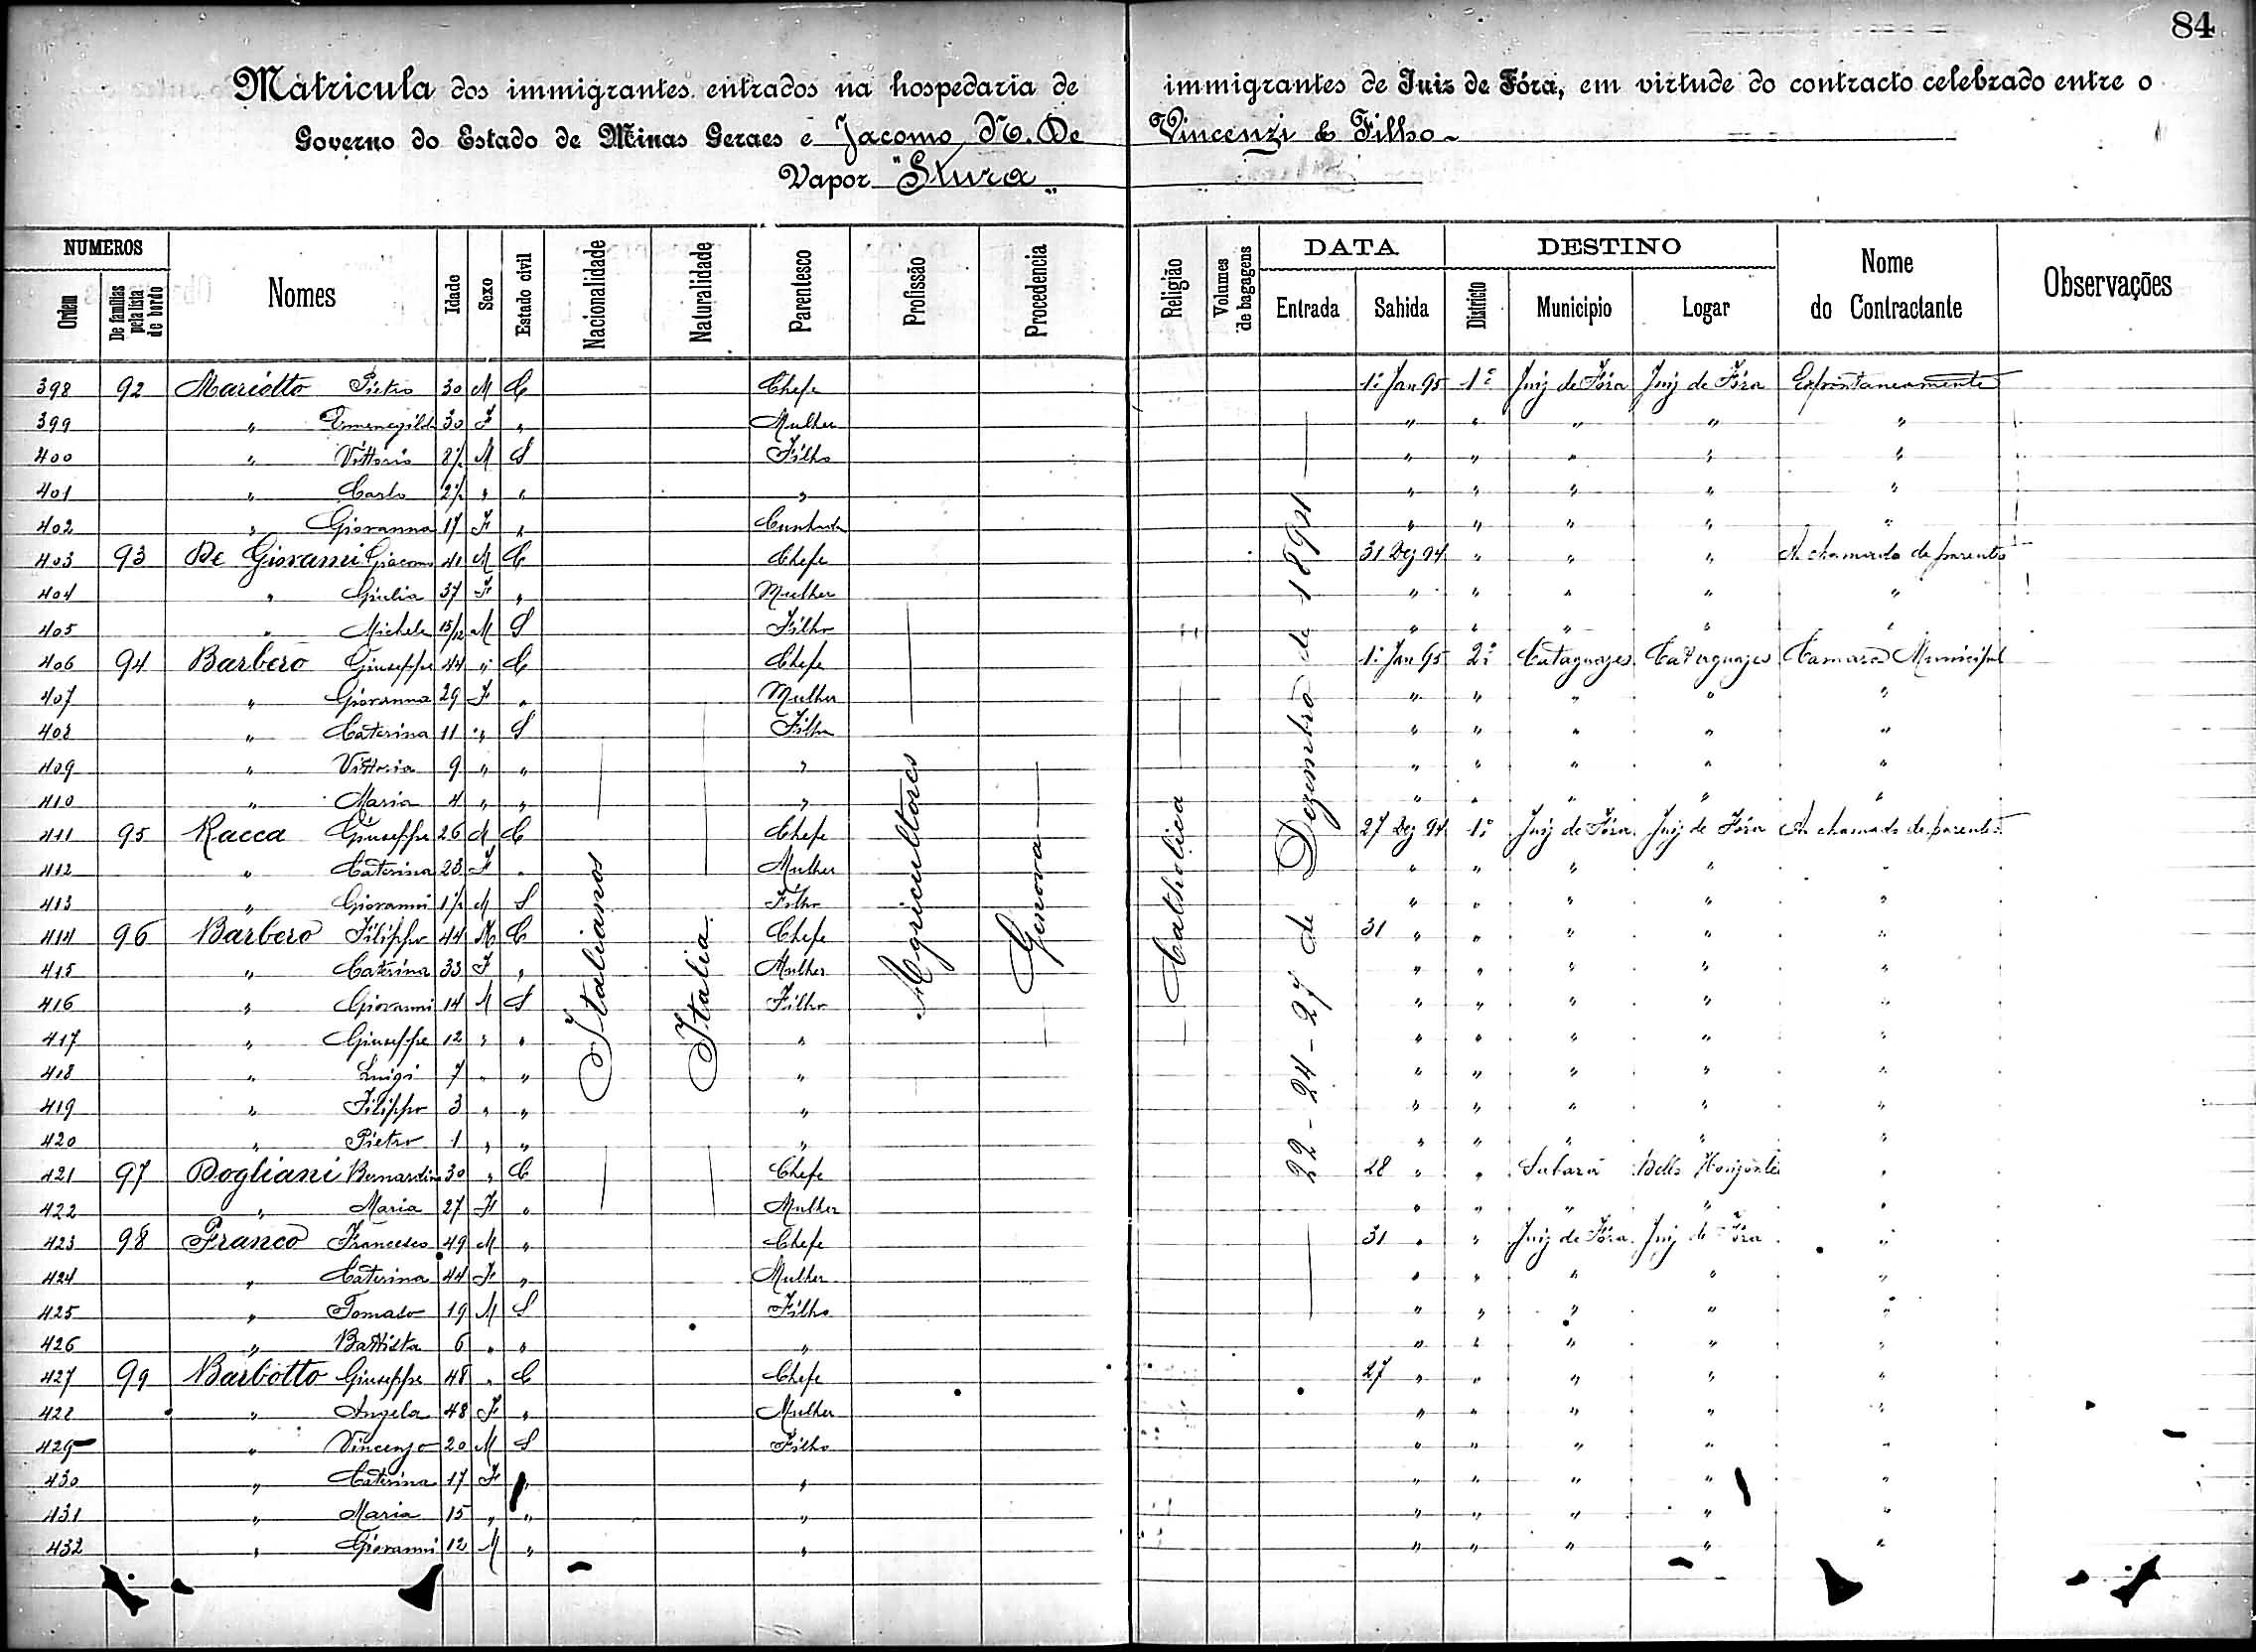 84
Matricula dos immigrantes entrados na hospedaria de immigrantes de Juiz de Fóra, em virtude do contracto celebrado entre o
Governo do Estado de Minas Geraes e Jacomo N. De Vincenzi & Filho
Vapor "Stura"
NUMEROS
Ordem
De familias pela lista de bordo
Nomes
Idade
Sexo
Estado civil
Nacionalidade
Naturalidade
Parentesco
Profissão
Procedencia
Religião
Volumes de bagagens
DATA
Entrada
Sahida
DESTINO
Districto
Municipio
Logar
Nome do Contractante
Observações
Italianos
Italia
Agricultores
Genova
Catholica
22 - 24 - 27 de Dezembro de 1894
398 92 Mariotto Pietro 30 M C Chefe 1º Jan 95 1º Juiz de Fóra Juiz de Fóra Espontaneamente
399 " 30 F " Mulher " " " " "
400 " Vittorio M S Filho " " " " "
401 " Carlo " " " " " " " "
402 " Giovanna 17 F " Cunhada " " " " "
403 93 De Giovanni Giacomo 41 M C Chefe 31 Dez 94 " " " A chamado de parentes
404 " Giulia 37 F " Mulher " " " " "
405 " Michele 15/12 M S Filho " " " " "
406 94 Barbero Giuseppe 44 " C Chefe 1º Jan 95 2º Cataguazes Cataguazes Camara Municipal
407 " Giovanna 29 F " Mulher " " " " "
408 " Caterina 11 " S Filha " " " " "
409 " Vittoria 9 " " " " " " " "
410 " Maria 4 " " " " " " " "
411 95 Racca Giuseppe 26 M C Chefe 27 Dez 94 1º Juiz de Fóra Juiz de Fóra A chamado de parentes
412 " Caterina 23 F " Mulher " " " " "
413 " Giovanni M S Filho " " " " "
414 96 Barbero Filippo 44 M C Chefe 31 " " " " "
415 " Caterina 33 F " Mulher " " " " "
416 " Giovanni 14 M S Filho " " " " "
417 " Giuseppe 12 " " " " " " " "
418 " Luigi 7 " " " " " " " "
419 " Filippo 3 " " " " " " " "
420 " Pietro 1 " " " " " " " "
421 97 Dogliani Bernardino 30 " C Chefe 28 " " Sabará Bello Horizonte "
422 " Maria 27 F " Mulher " " " " "
423 98 Franco Francesco 49 M " Chefe 31 " " Juiz de Fóra Juiz de Fóra "
424 " Caterina 44 F " Mulher " " " " "
425 " Tomaso 19 M S Filho " " " " "
426 " Battista 6 " " " " " " " "
427 99 Barbotto Giuseppe 48 " C Chefe 27 " " " " "
428 " Angela 48 F " Mulher " " " " "
429 " Vincenzo 20 M S Filho " " " " "
430 " Caterina 17 F " " " " " " "
431 " Maria 15 " " " " " " " "
432 " Giovanni 12 M " " " " " " "